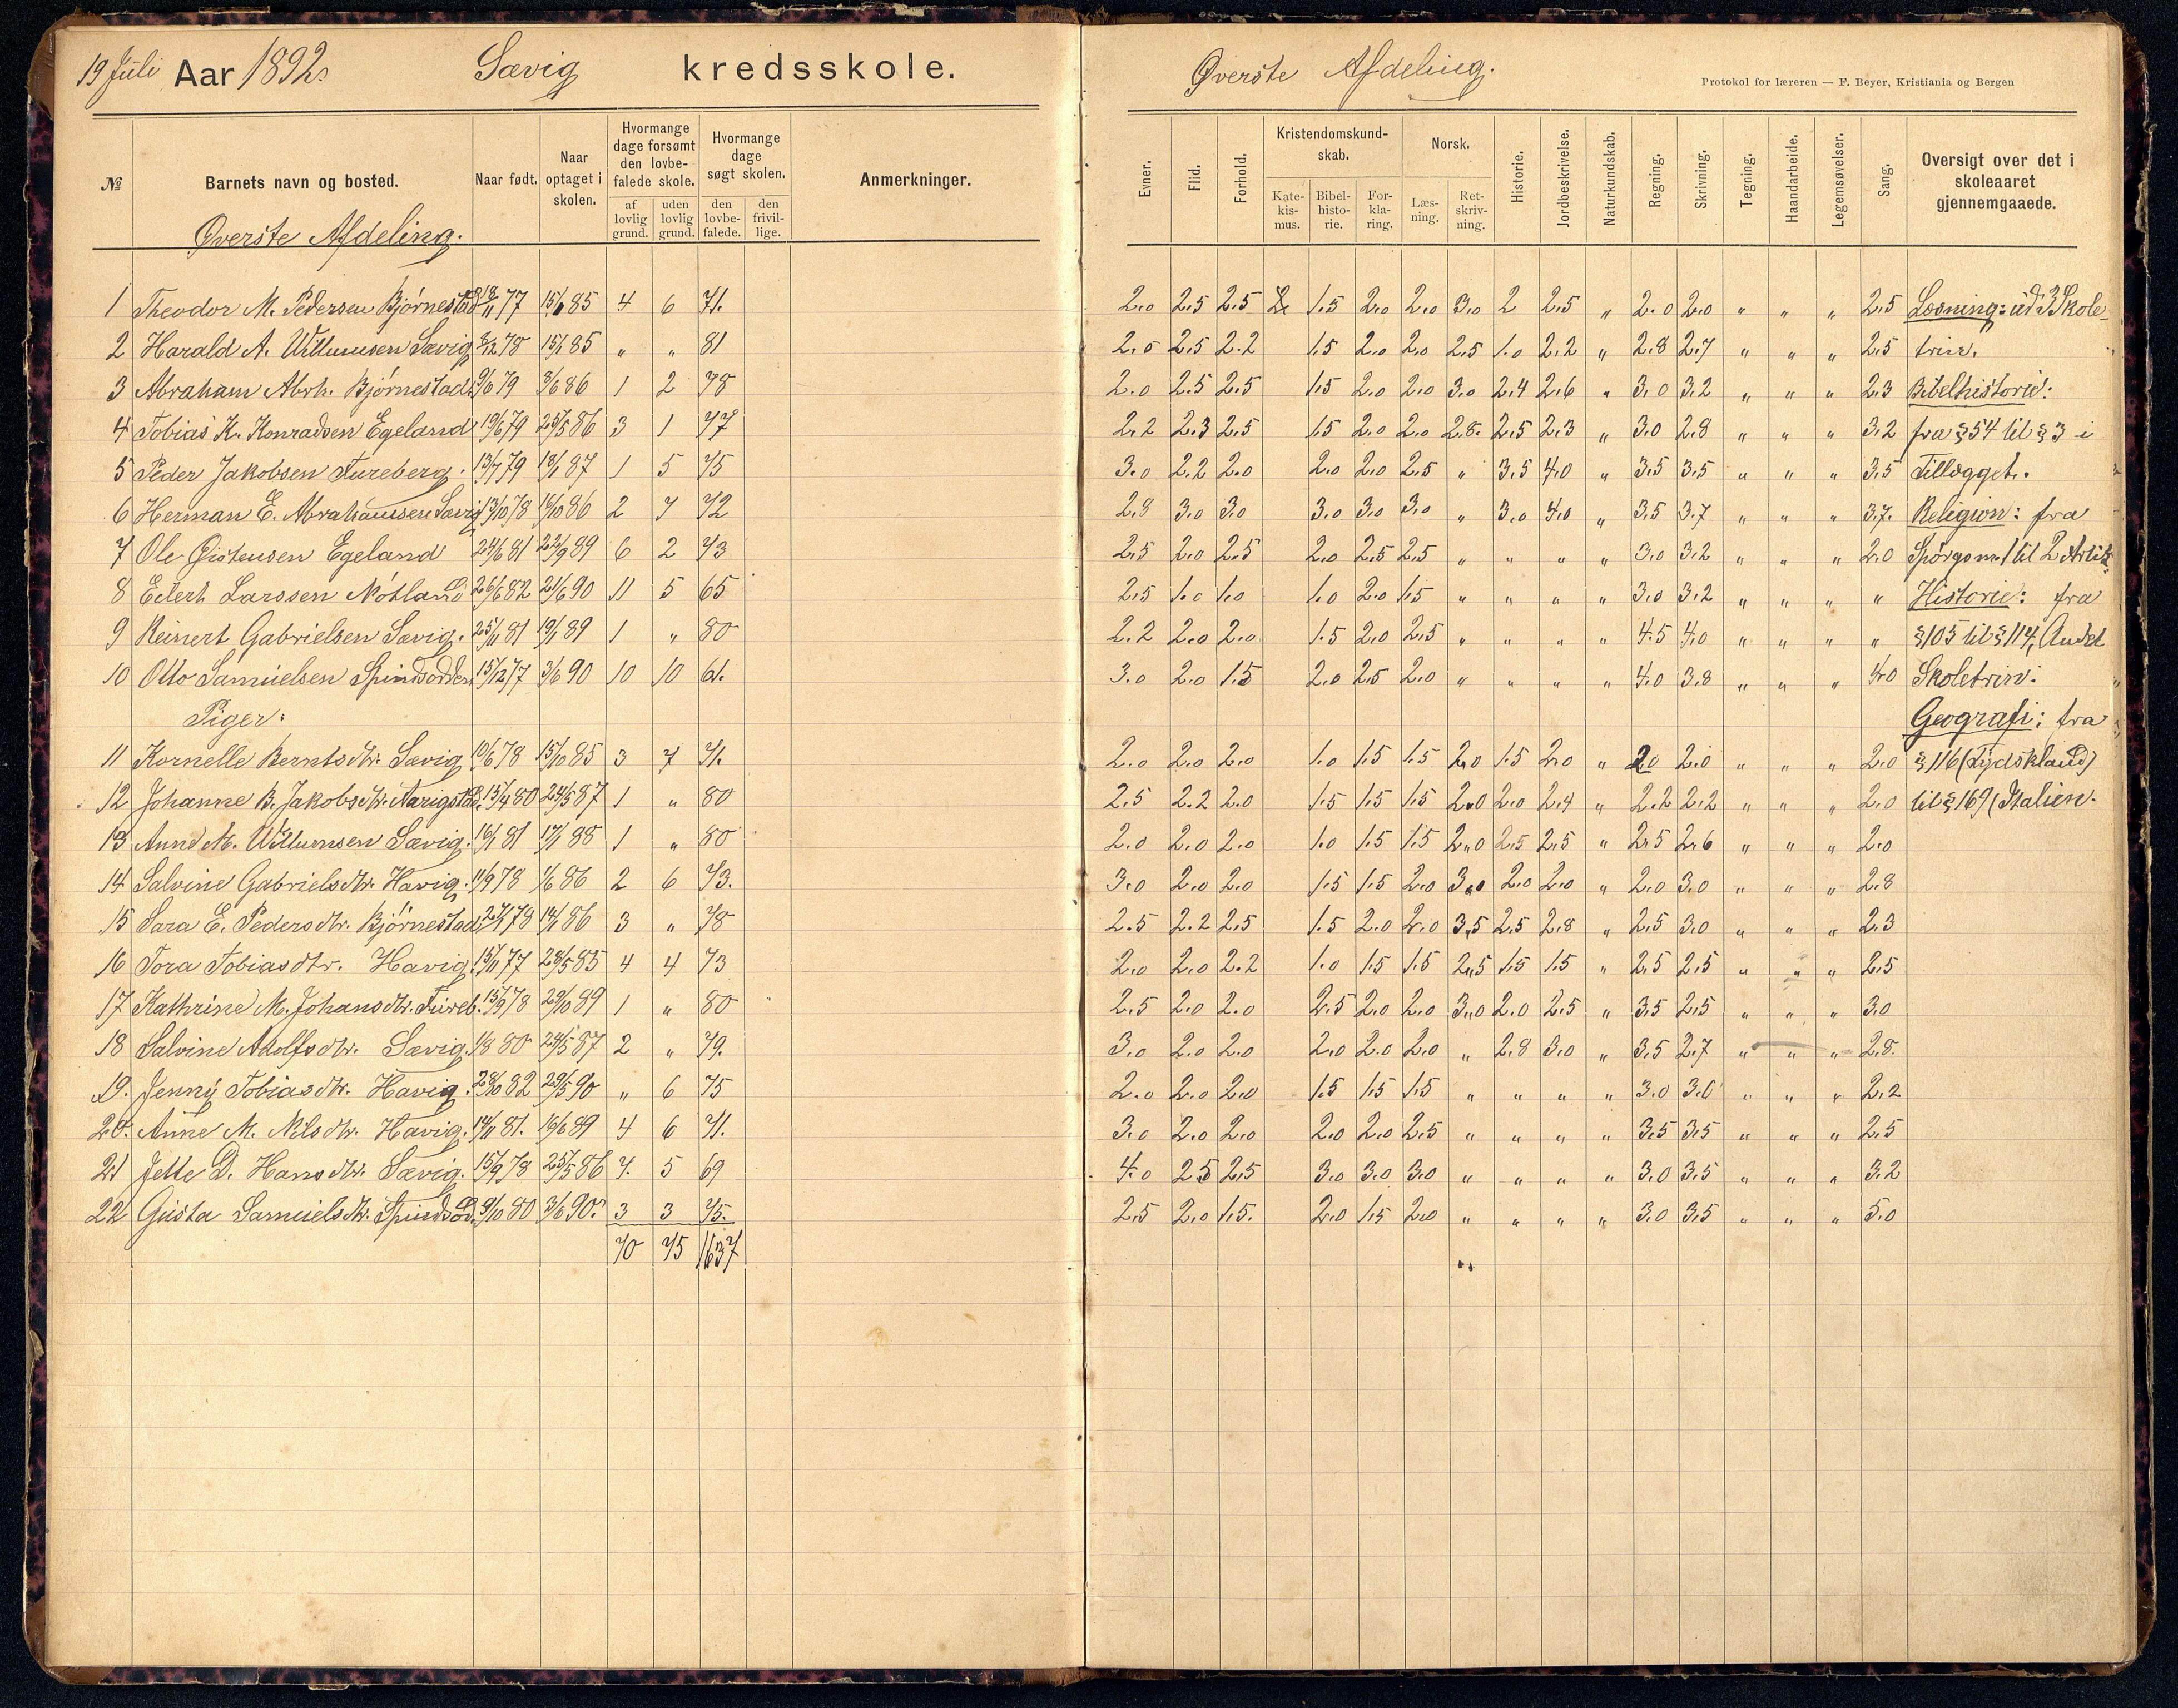 19 Juli Aar 1892. Sævig kredsskole.
№
Barnets navn og bosted.
Naar født.
Naar optaget i skolen.
Hvormange dage forsømt den lovbefalede skole.
af lovlig grund.
uden lovlig grund.
Hvormange dage søgt skolen.
den lovbe-falede.
den frivil-lige.
Anmerkninger.
Øverste Afdeling.
1 Theodor M. Pedersen Bjørnestad 18/11 77 85 4 6 71.
2 Harald A. Willumsen Sævig 8/12 78 15/1 85 " " 81
3 Abraham Abrh. Bjørnestad 79 3/6 86 1 2 78
4 Tobias K. Konradsen Egeland 19/6 79 25/5 86 3 1 77
5 Peder Jakobsen Tureberg. 13/7 79 18/1 87 1 5 75
6 Herman E. Abrahamsen Sævig 13/10 78 16/10 86 2 7 72
7 Ole Øistensen Egeland 24/6 81 22/9 89 6 2 73
8 Eilert Larssen Nøtland 26/6 82 2/6 90 11 5 65
9 Reinert Gabrielsen Sævig. 25/11 81 19/1 89 1 " 80
10 Otto Samuelsen Spindsodden 15/12 77 3/6 90 10 10 61.
Piger:
11 Kornelle Berntsdtr. Sævig 10/6 78 15/10 85 3 7 71.
12 Johanne B. Jakobsdtr. 15/4 80 24/5 87 1 " 80
13 Anne M. Willumsen Sævig. 16/1 81 17/1 88 1 " 80
14 Salvine Gabrielsdtr. Havig. 11/9 78 1/6 86 2 6 73.
15 Sara E. Pedersdtr. Bjørnestad 27/1 78 14/1 86 3 " 78
16 Tora Tobiasdtr. Havig. 15/11 77 28/5 85 4 4 73
17 Kathrine M. Johansdtr. Tureb. 15/9 78 29/10 89 1 " 80
18 Salvine Adolfsdtr. Sævig. 1/8 80 24/5 87 2 " 79.
19. Jenny Tobiasdtr. Havig. 28/10 82 29/5 90 " 6 75
20. Anne M. Nilsdtr. Havig. 14/11 81. 16/6 89 4 6 71.
21 Jette D. Hansdtr. Sævig. 15/9 78 25/5 86 7. 5 69
22 Gusta Samuelsdtr. Spindsod. 9/10 80 3/6 90. 3 3 75.
70 75 1637
Øverste Afdeling.
Protokol for læreren — F. Beyer, Kristiania og Bergen
Evner.
Flid.
Forhold.
Kristendomskund-skab.
Kate-kis-mus.
Bibel-histo-rie.
For-kla-ring.
Norsk.
Læs-ning.
Ret-skriv-ning.
Historie.
Jordbeskrivelse.
Naturkundskab.
Regning.
Skrivning.
Tegning.
Haandarbeide.
Legemsøvelser.
Sang.
Oversigt over det i skoleaaret gjennemgaaede.
2.0 2.5 2.5 2 1.5 2.0 2.0 3.0 2 2.5 " 2.0 2.0 " " " 2.5 Læsning: ud 3 Skole-
2.0 2.5 2.2 1.5 2.0 2.0 2.5 1.0 2.2 " 2.8 2.7 " " " 2.5 trin.
2.0 2.5 2.5 1.5 2.0 2.0 3.0 2.4 2.6 " 3.0 3.2 " " " 2.3 Bibelhistorie:
2.2 2.3 2.5 1.5 2.0 2.0 2.8. 2.5 2.3 " 3.0 2.8 " " " 3.2 fra § 54 til § 3 i
3.0 2.2 2.0 2.0 2.0 2.5 " 3.5 4.0 " 3.5 3.5 " " " 3.5 Tillægget.
2.8 3.0 3.0 3.0 3.0 3.0 " 3.0 4.0 " 3.5 3.7 " " " 3.7. Religion: fra
2.5 2.0 2.5 2.0 2.5 2.5 " " " " 3.0 3.2 " " " 2.0 Spörgsm. 1 til 2 Artik.
2.5 1.0 1.0 1.0 2.0 1.5 " " " " 3.0 3.2 " " " " Historie: fra
2.2 2.0 2.0 1.5 2.0 2.5 " " " " 4.5 4.0 " " " " § 105 til § 114, Andet
3.0 2.0 1.5 2.0 2.5 2.0 " " " " 4.0 3.8 " " " 4.0 Skoletrin:
Geografi: fra
2.0 2.0 2.0 1.0 1.5 1.5 2.0 1.5 2.0 " 2.0 2.0 " " " 2.0 § 116 (Tydskland)
2.5 2.2 2.0 1.5 1.5 1.5 2.0 2.0 2.4 " 2.2 2.2 " " " 2.0 til § 169 (Italien.
2.0 2.0 2.0 1.0 1.5 1.5 2.0 2.5 2.5 " 2.5 2.6 " " " 2.0
3.0 2.0 2.0 1.5 1.5 2.0 3.0 2.0 2.0 " 2.0 3.0 " " " 2.8
2.5 2.2 2.5 1.5 2.0 2.0 3.5 2.5 2.8 " 2.5 3.0 " " " 2.3
2.0 2.0 2.2 1.0 1.5 1.5 2.5 1.5 1.5 " 2.5 2.5 " " " 2.5
2.5 2.0 2.0 2.5 2.0 2.0 3.0 2.0 2.5 " 3.5 2.5 " " " 3.0
3.0 2.0 2.0 2.0 2.0 2.0 " 2.8 3.0 " 3.5 2.7 " " " 2.8.
2.0 2.0 2.0 1.5 1.5 1.5 " " " " 3.0 3.0 " " " 2.2
3.0 2.0 2.0 2.0 2.0 2.5 " " " " 3.5 3.5 " " " 2.5
4.0 2.5 2.5 3.0 3.0 3.0 " " " " 3.0 3.5 " " " 3.2
2.5 2.0 1.5. 2.0 1.5 2.0 " " " " 3.0 3.5 " " " 5.0